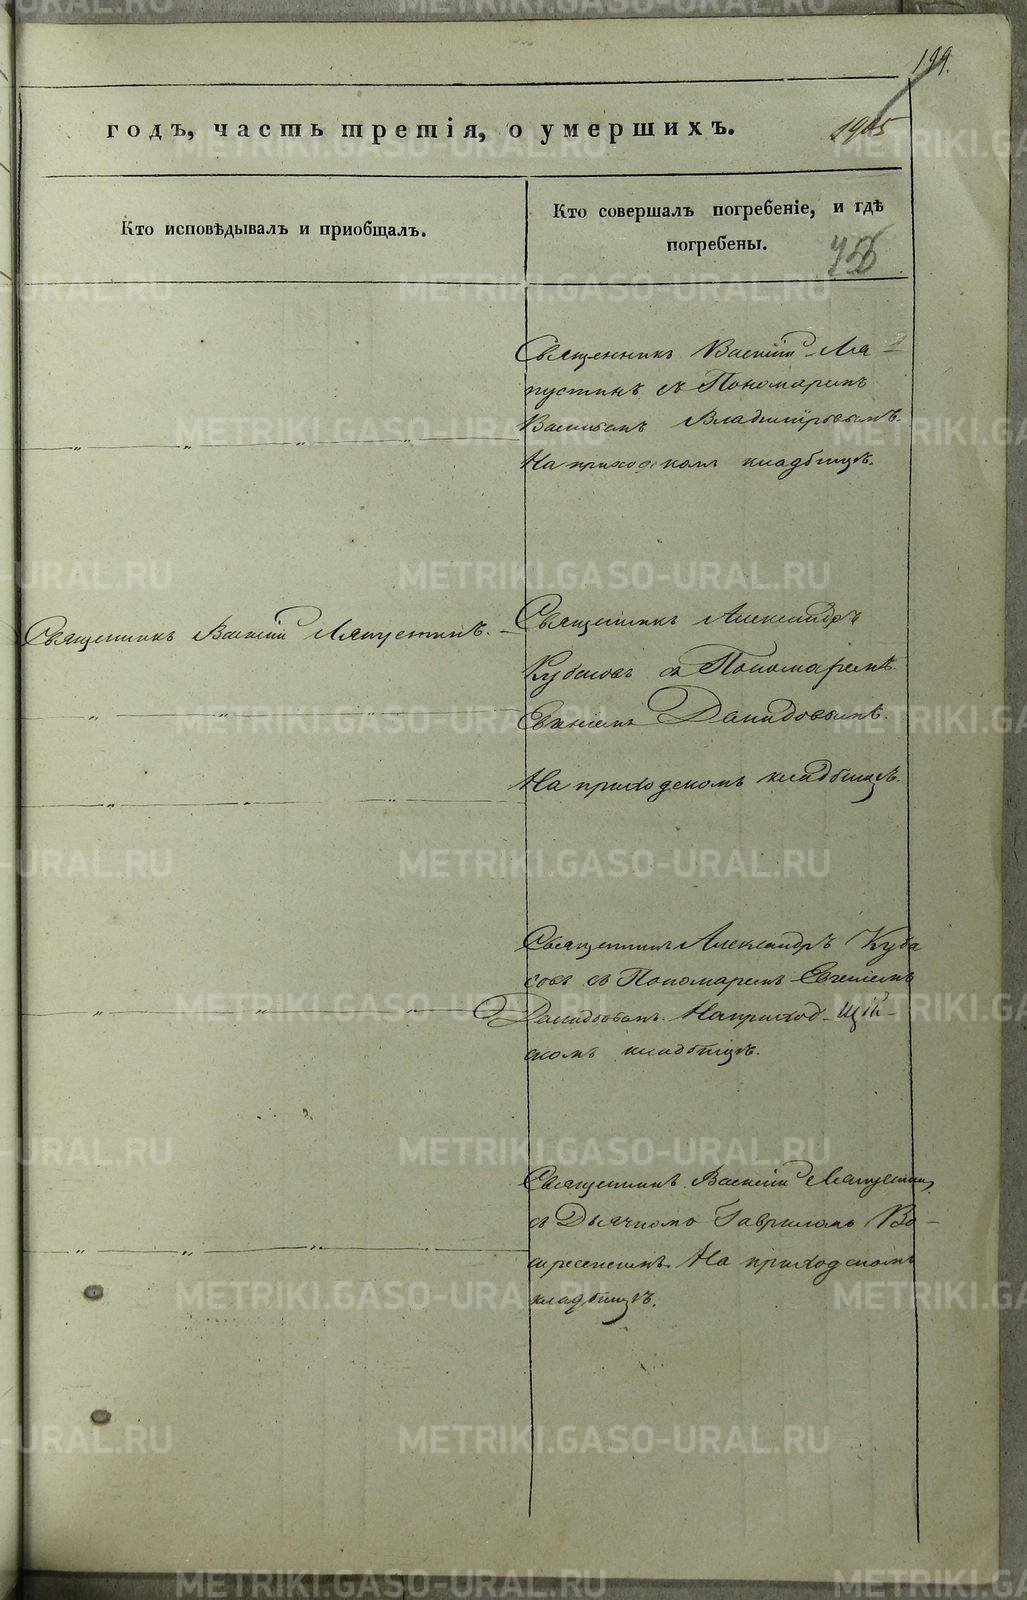 199.
годъ, часть третія, о умершихъ.
1905
Кто исповѣдывалъ и приобщалъ.
Кто совершалъ погребеніе, и гдѣ
погребены.
Священникъ Василій Ля-
пустинъ съ Пономаремъ
Василіемъ Владиміровымъ.
На приходскомъ кладбищѣ.
Священникъ Василій Ляпустинъ.
Священникъ Александръ
Кубасовъ съ Пономаремъ
Евгеніемъ Давидовымъ.
На приходскомъ кладбищѣ.
Священникъ Александръ Куба
совъ съ Пономаремъ Евгеніемъ
Давидовымъ. На приход-
скомъ кладбищѣ.
Священникъ Василій Ляпустинъ
съ Дьячкомъ Гавриломъ Во-
скресенскимъ. На приходскомъ
кладбищѣ.
METRIKI.GASO-URAL.RU